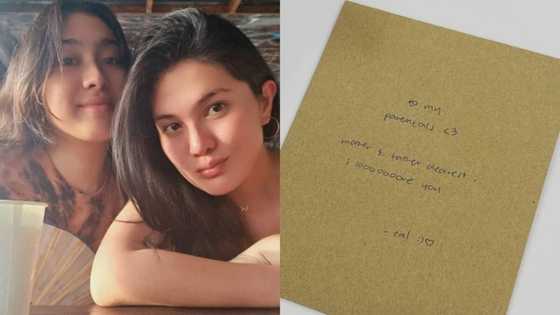 to my
parentals <3
mother & father dearest,
i looooooove you
- cal :)♡